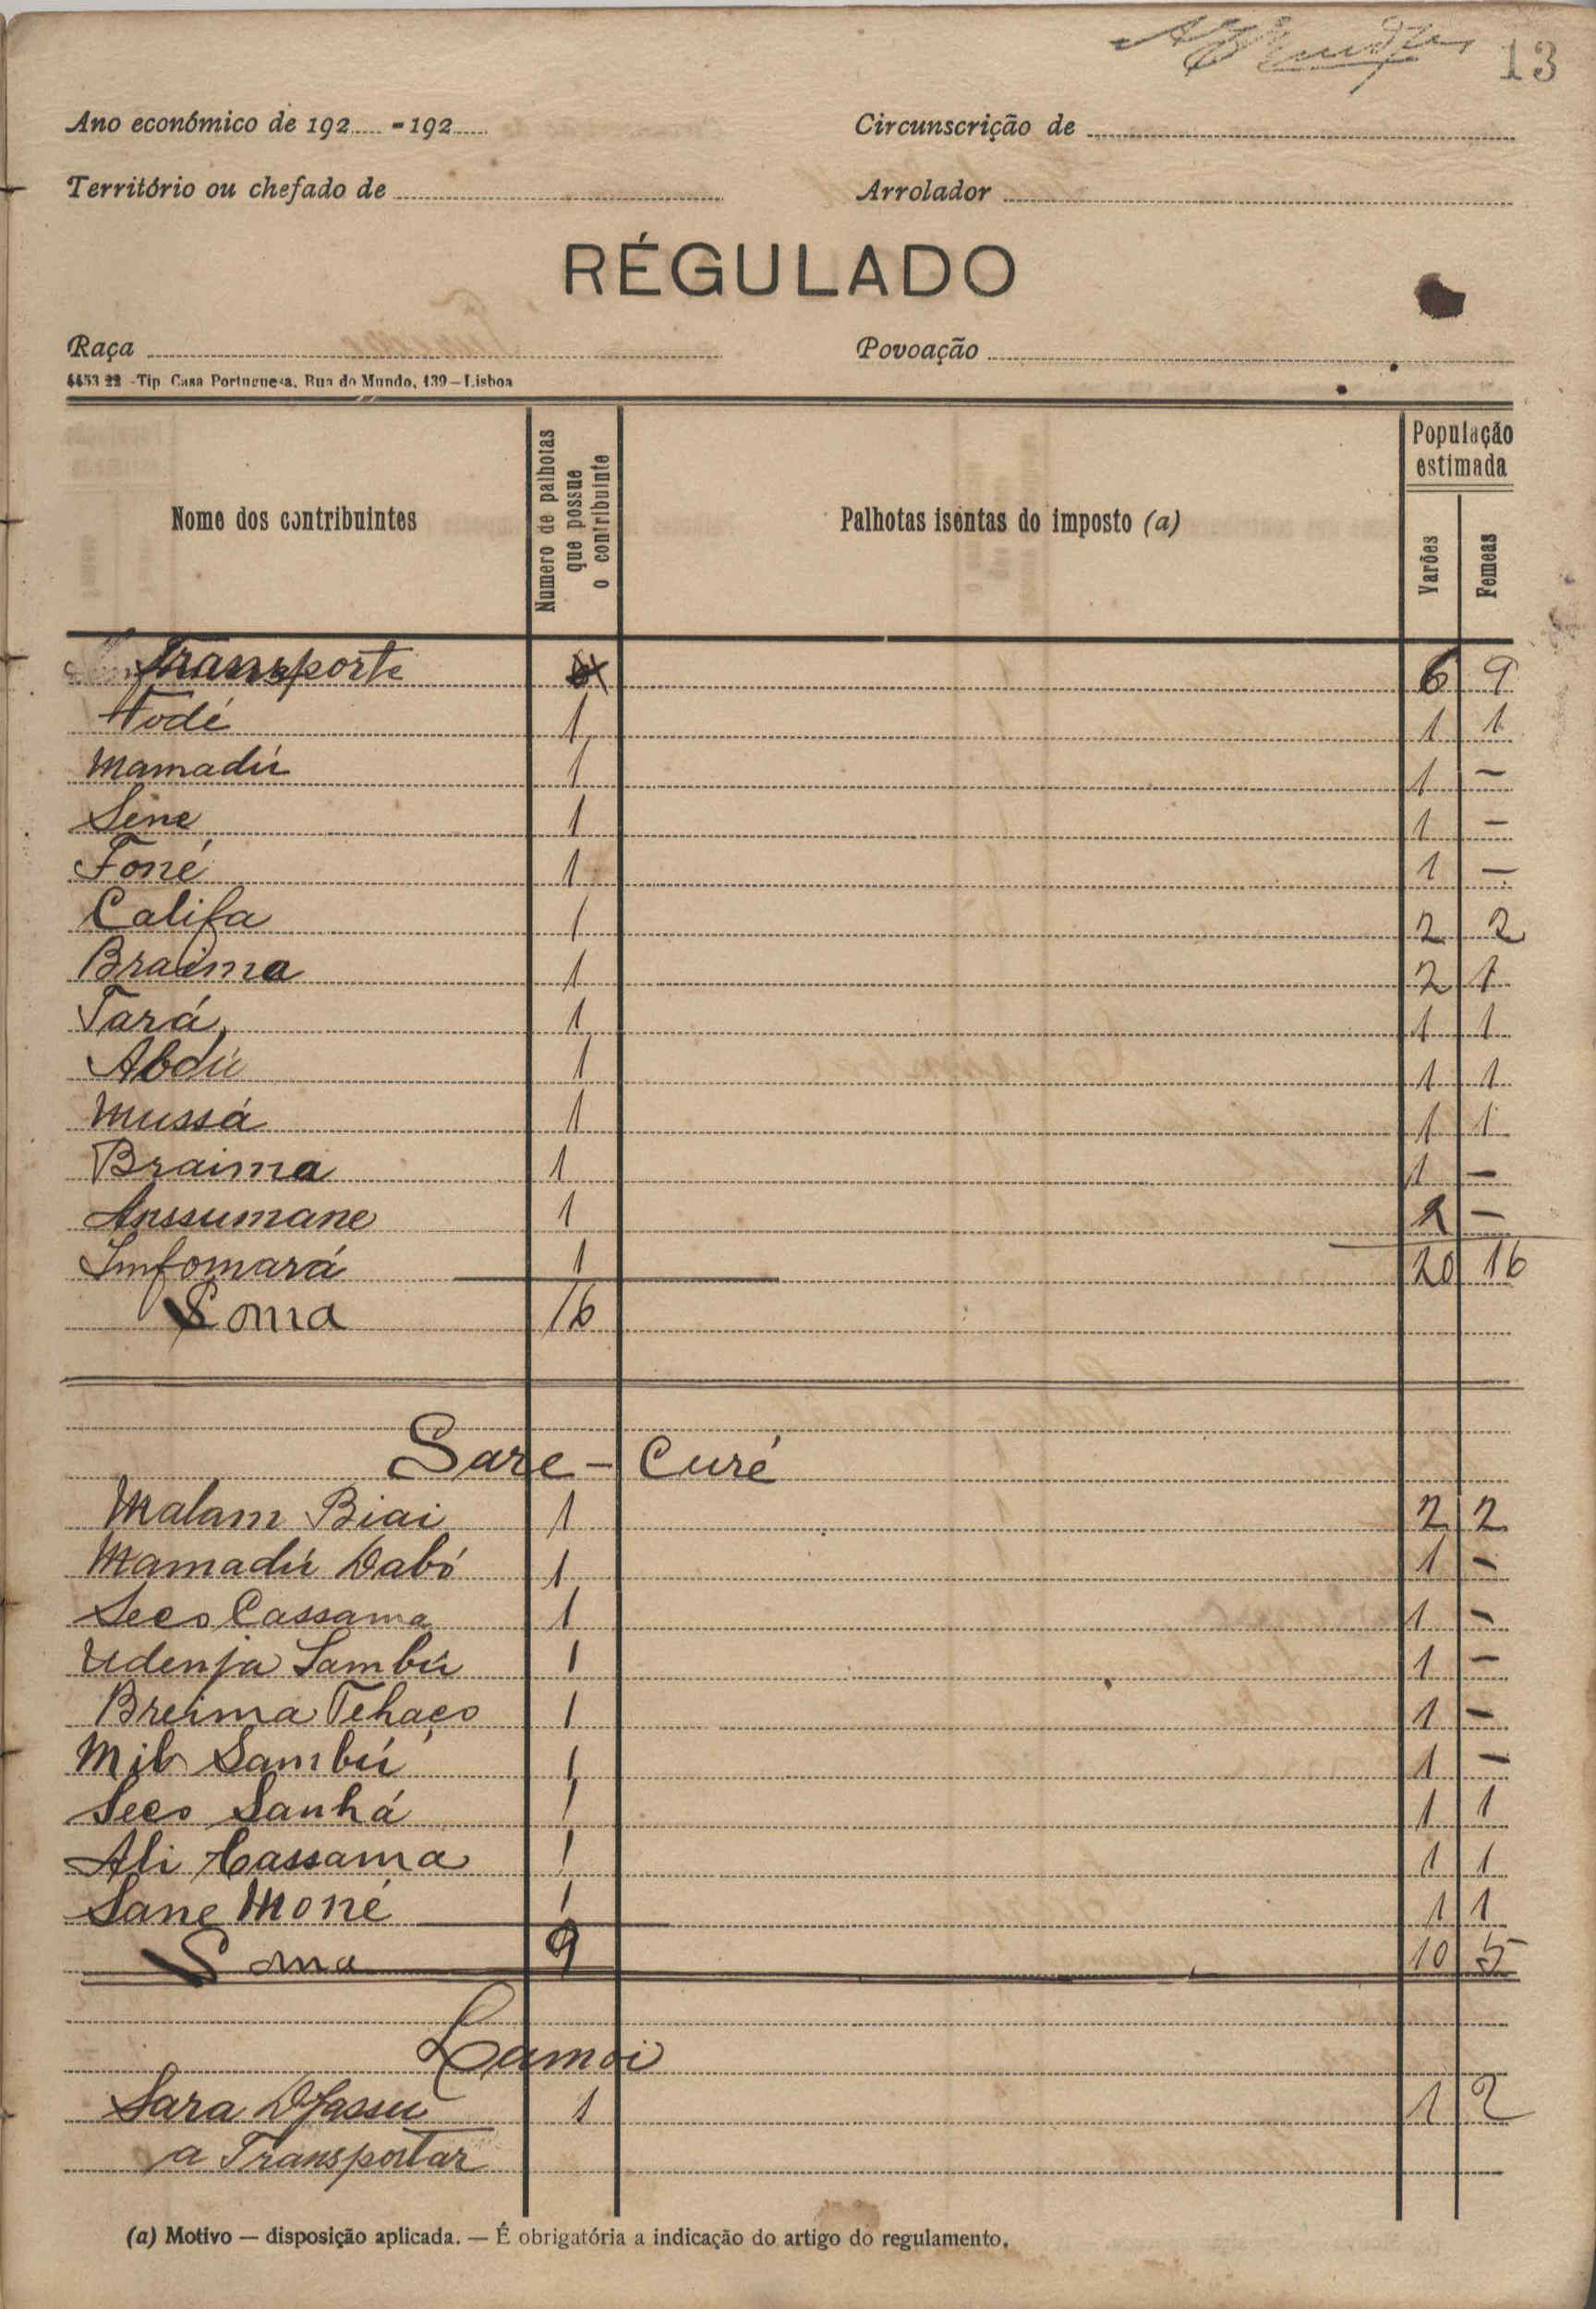 13
Ano económico de 192 -192
Circunscrição de
Território ou chefado de
Arrolador
RÉGULADO
Raça
Povoação
4453 22 -Tip. Casa Portuguesa, Rua do Mundo, 139—Lisboa
Nome dos contribuintes
Numero de palhotas que possue o contribuinte
Palhotas isentas do imposto (a)
População estimada
Varões
Femeas
Transporte 6 9
Fodé 1 1 1
Mamadú 1 1 —
Sene 1 1 —
Foné 1 1 —
Califa 1 2 2
Braima 1 2 1
Tará 1 1 1
Abdú 1 1 1
Mussá 1 1 1
Braima 1 1 —
Anssumane 1 2 —
Imfomará 1 20 16
Soma 16
Sare-Curé
Malam Biai 1 2 2
Mamadú Dabó 1 1 —
Seco Cassama 1 1 —
Udenja Sambú 1 1 —
Breima Tehaço 1 1 —
Mil Sambú 1 1 —
Seco Sanhá 1 1 1
Ali Cassama 1 1 1
Sane Moné 1 1 1
Soma 9 10 5
Lamoi
Sara Djassu 1 1 2
a Transportar
(a) Motivo — disposição aplicada. — É obrigatória a indicação do artigo do regulamento.